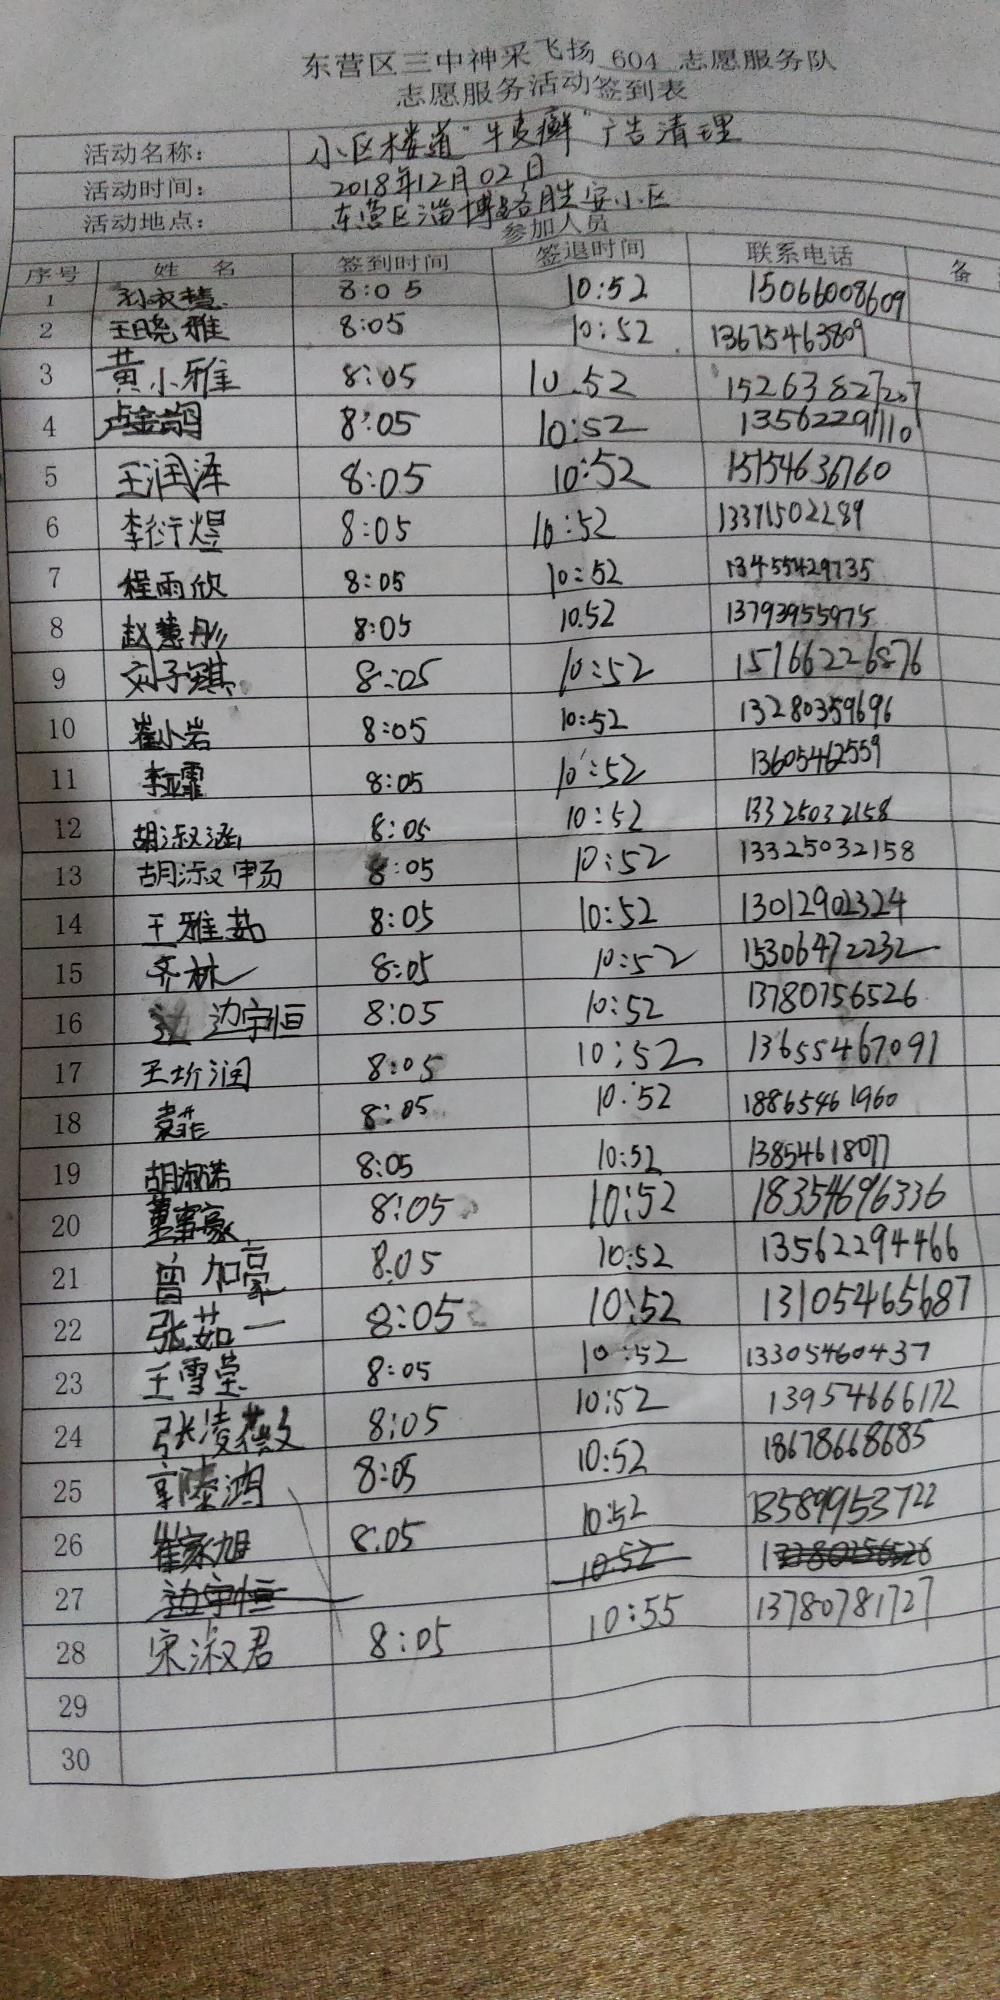 东营区三中神采飞扬 604 志愿服务队
志愿服务活动签到表
活动名称： 小区楼道"牛皮癣"广告清理
活动时间： 2018年12月02日
活动地点： 东营区淄博路胜安小区
参加人员
序号 姓 名 签到时间 签退时间 联系电话 备
1 8:05 10:52 15066008609
2 王晓雅 8:05 10:52 13675463809
3 黄小雅 8:05 10.52 15263827207
4 8:05 10:52 13562291110
5 王润泽 8:05 10:52 15154636760
6 李衍煜 8:05 10:52 13371502289
7 程雨欣 8:05 10:52 13455429735
8 赵慧彤 8:05 10.52 13793955975
9 刘子琪 8:05 10:52 15166226876
10 崔小岩 8:05 10:52 13280359696
11 李亚霏 8:05 10:52 13605462559
12 胡淑涵 8:05 10:52 13325032158
13 胡淑畅 8:05 10:52 13325032158
14 王雅茹 8:05 10:52 13012902324
15 齐林 8:05 10:52 15306472232
16 边宇恒 8:05 10:52 13780756526
17 王圻润 8:05 10:52 13655467091
18 袁菲 8:05 10:52 18865461960
19 胡淑诺 8:05 10:52 13854618077
20 董事豪 8:05 10:52 18354696336
21 曾加豪 8:05 10:52 13562294466
22 张茹一 8:05 10:52 13105465687
23 王雪莹 8:05 10:52 13305460437
24 张凌薇 8:05 10:52 13954666172
25 8:05 10:52 18678668685
26 崔家旭 8:05 10:52 13589953722
27 边宇恒 10:52
28 宋淑君 8:05 10:55 13780781727
29
30